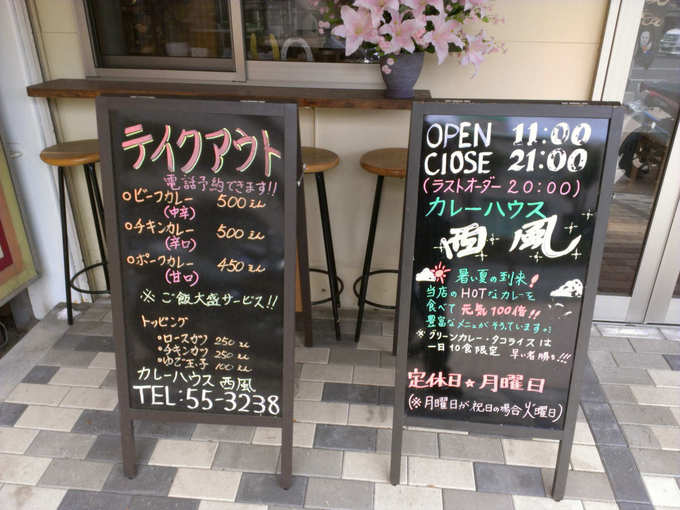 テイクアウト
電話予約できます!!
ビーフカレー 500えん
(中辛)
チキンカレー 500えん
(辛口)
ポークカレー 450えん
(甘口)
※ご飯大盛サービス!!
トッピング
ロースカツ 250えん
チキンカツ 250えん
ゆで玉子 100えん
カレーハウス 西風
TEL:55-3238
OPEN 11:00
ClOSE 21:00
(ラストオーダー 20:00)
カレーハウス
西風
暑い夏の到来!
当店のHOTなカレーを
食べて 元気100倍!!
豊富なメニューがそろっています。
※グリーンカレー・タコライスは
一日10食限定 早い者勝ち!!!
定休日☆月曜日
(※月曜日が祝日の場合火曜日)